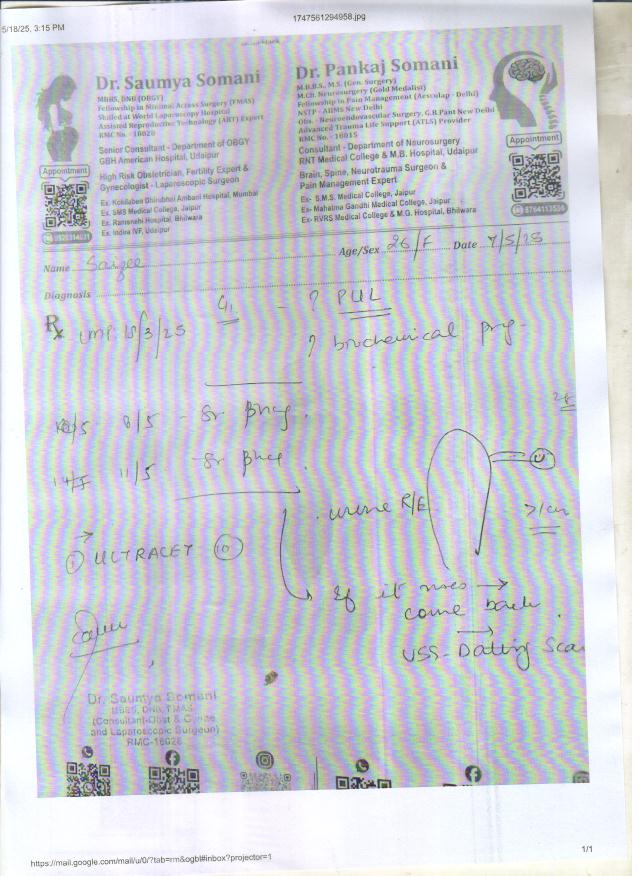 1747561294958.jpg
5/18/25, 3:15 PM
Dr. Saumya Somani
MBBS, DNB (OBGY)
Fellowship in Minimal Access Surgery (FMAS)
Skilled at World Laparoscopy Hospital
Assisted Reproductive Technology (ART) Expert
RMC No. - 16026
Senior Consultant - Department of OBGY
GBH American Hospital, Udaipur
High Risk Obstetrician, Fertility Expert &
Gynecologist - Laparoscopic Surgeon
Ex. Kokilaben Dhirubhai Ambani Hospital, Mumbai
Ex. SMS Medical College, Jaipur
Ex. Ramsnehi Hospital, Bhilwara
Ex. Indira IVF, Udaipur
Appointment
Dr. Pankaj Somani
M.B.B.S., M.S. (Gen. Surgery)
M.Ch. Neurosurgery (Gold Medalist)
Fellowship in Pain Management (Aesculap - Delhi)
NSTP - AIIMS New Delhi
Obs. - Neuroendovascular Surgery, G.B.Pant New Delhi
Advanced Trauma Life Support (ATLS) Provider
RMC No. - 16015
Consultant - Department of Neurosurgery
RNT Medical College & M.B. Hospital, Udaipur
Brain, Spine, Neurotrauma Surgeon &
Pain Management Expert
Ex- S.M.S. Medical College, Jaipur
Ex- Mahatma Gandhi Medical College, Jaipur
Ex- RVRS Medical College & M.G. Hospital, Bhilwara
Appointment
8764113536
Name Age/Sex 26/F Date 7/5/25
Diagnosis
Rx LMP: 15/3/25 G1 - ? PUL
? biochemical preg.
8/5 - Sr βhcg.
11/5 Sr βhcg.
urine R/E
→
① ULTRACET 10
If it rises →
come back.
→
USS - Dating Scan
Dr. Saumya Somani
MBBS, DNB, FMAS
(Consultant-Obst & Gynae
and Laparoscopic Surgeon)
RMC-16026
https://mail.google.com/mail/u/0/?tab=rm&ogbl#inbox?projector=1
1/1